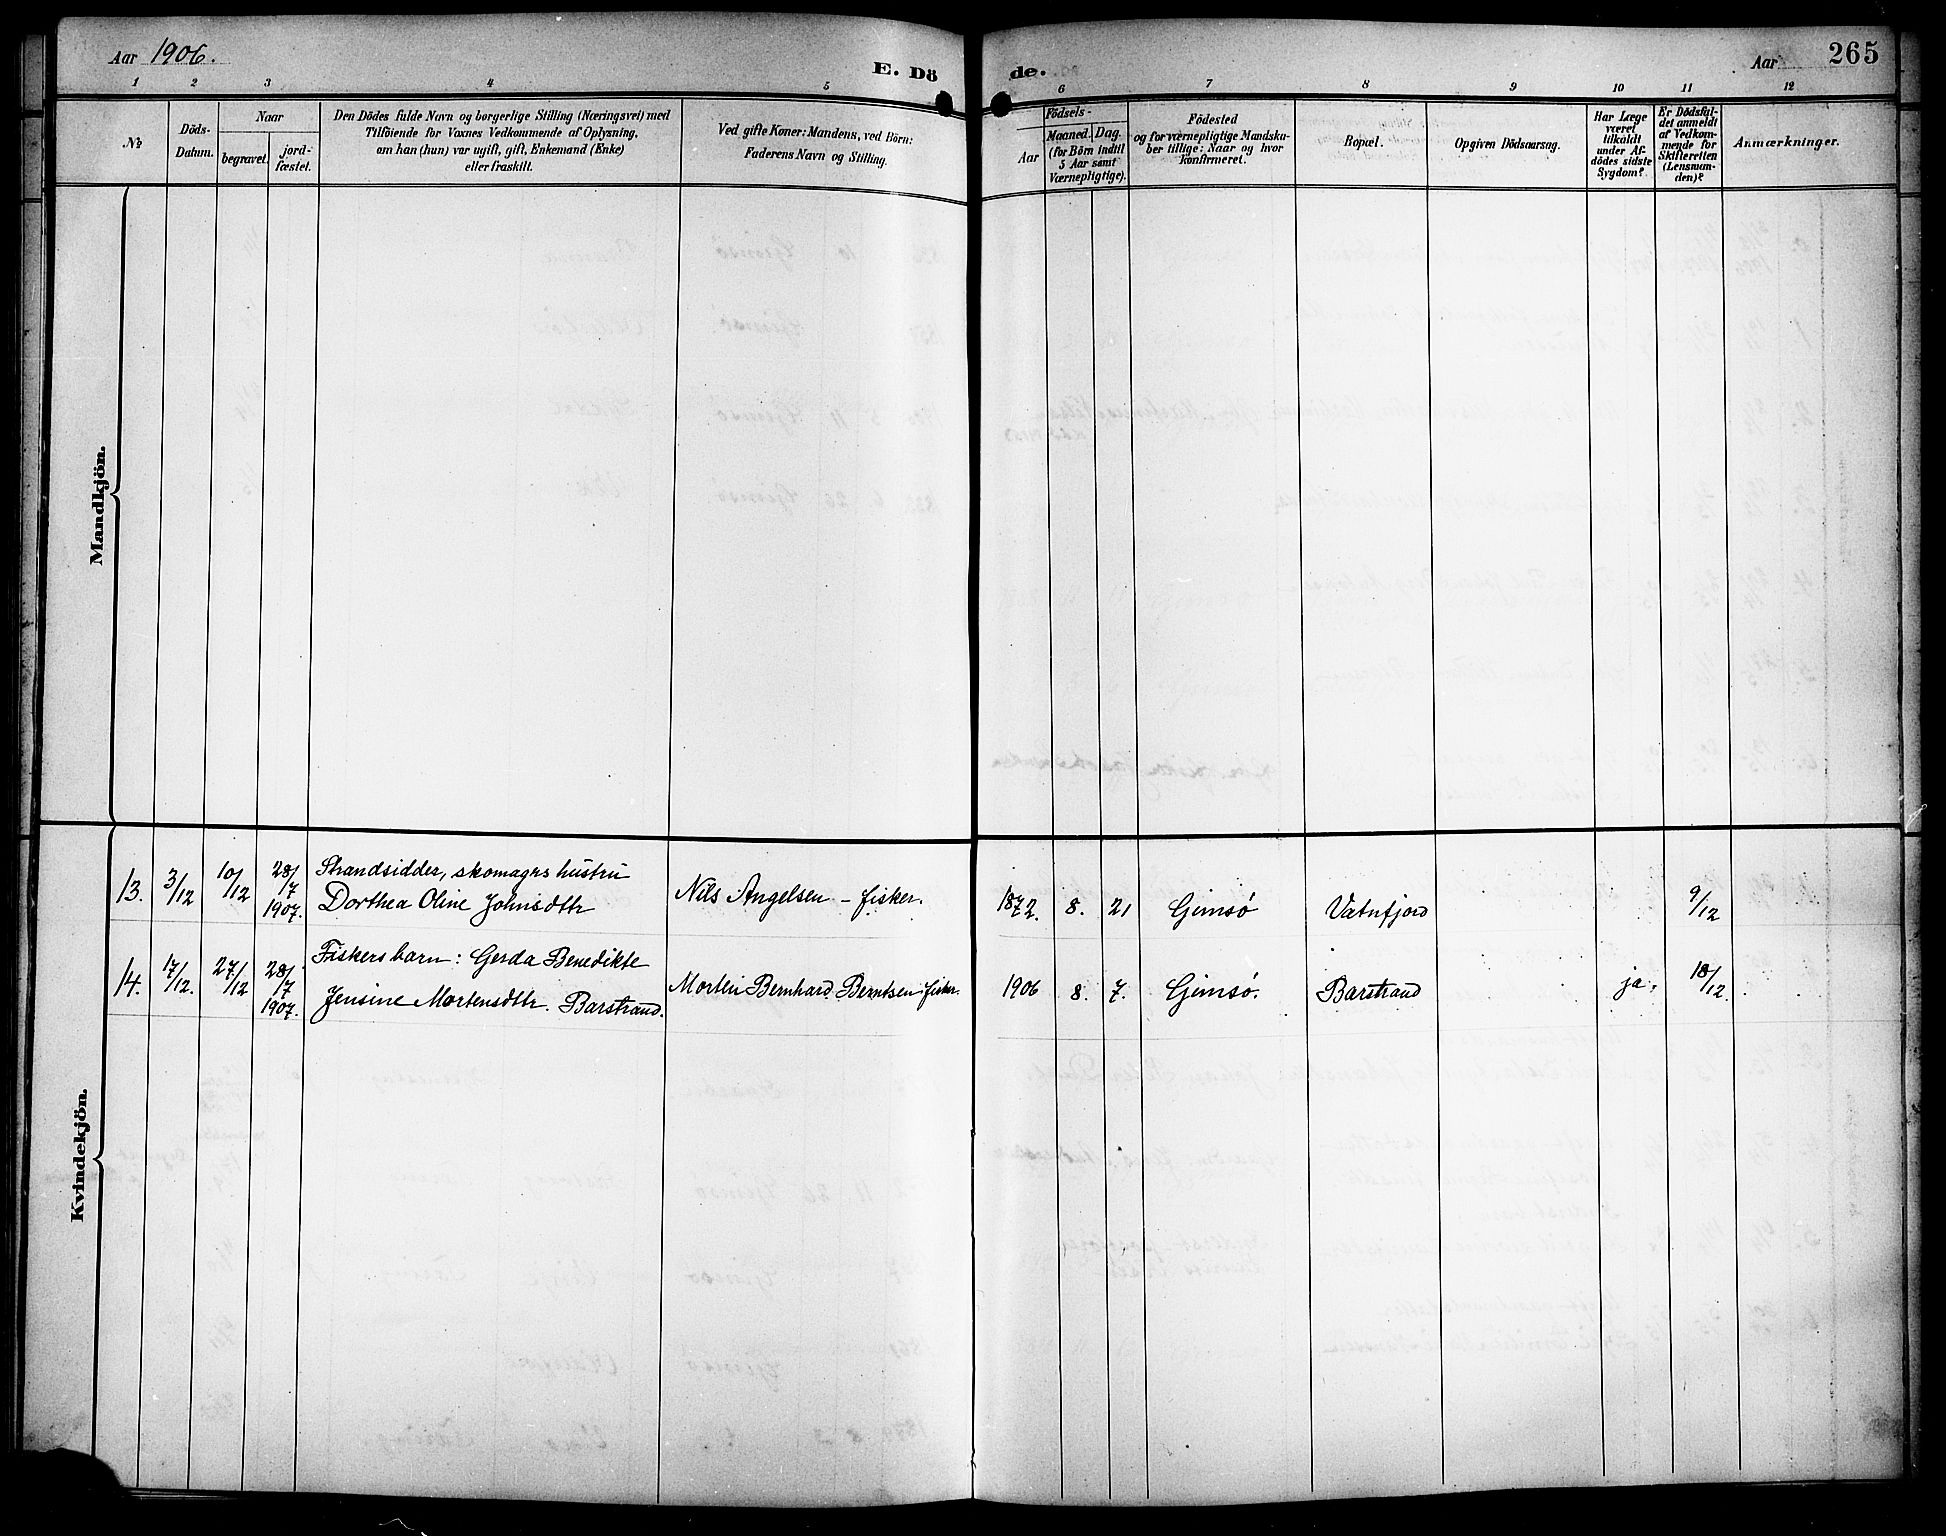 Aar 1906.
E. Dö
de.
Aar
265
1 2 3 4 5 6 7 8 9 10 11 12
№
Döds-
Datum.
Naar
begravet.
jord-
fæstet.
Den Dödes fulde Navn og borgerlige Stilling (Næringsvei) med
Tilföiende for Voxnes Vedkommende af Oplysning,
om han (hun) var ugift, gift, Enkemand (Enke)
eller fraskilt.
Ved gifte Koner: Mandens, ved Börn:
Faderens Navn og Stilling.
Födsels-
Aar
Maaned. Dag.
(for Börn indtil
5 Aar samt
Værnepligtige).
Födested
og for værnepligtige Mandska-
ber tillige: Naar og hvor
konfirmeret.
Bopæl.
Opgiven Dödsaarsag.
Har Læge
været
tilkaldt
under Af-
dödes sidste
Sygdom?
Er Dödsfal-
det anmeldt
af Vedkom-
mende for
Skifteretten
(Lensman-
den)?
Anmærkninger.
Mandkjön.
Kvindekjön.
Strandsidder, skomagrs hustru
13. 3/12 10/12 28/7 1907. Dorthea Oline Johnsdttr Nils Angelsen - fisker. 1872. 8. 21 Gimsø Vatnfjord 9/12
Fiskers barn: Gerda Benedikte
14. 17/12. 27/12 28/7 1907. Jensine Mortensdttr. Barstrand. Morten Bernhard Berntsen fisker. 1906 8. 7. Gimsø. Barstrand ja. 18/12.